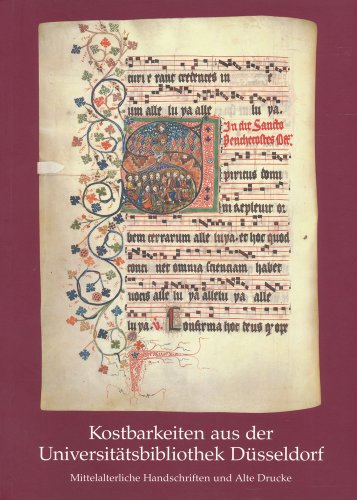 curi e rant credentes in e
um alle lu ya alle lu ya.
In die Sancto
Penthecostes Off.
piritus domi
bem terrarum alle luya. et hoc quod
conti net omnia scientiam haber
uocis alle lu ya allelu ya alle
lu ya. V. Confirma hoc deus q̄ op
Kostbarkeiten aus der
Universitätsbibliothek Düsseldorf
Mittelalterliche Handschriften und Alte Drucke